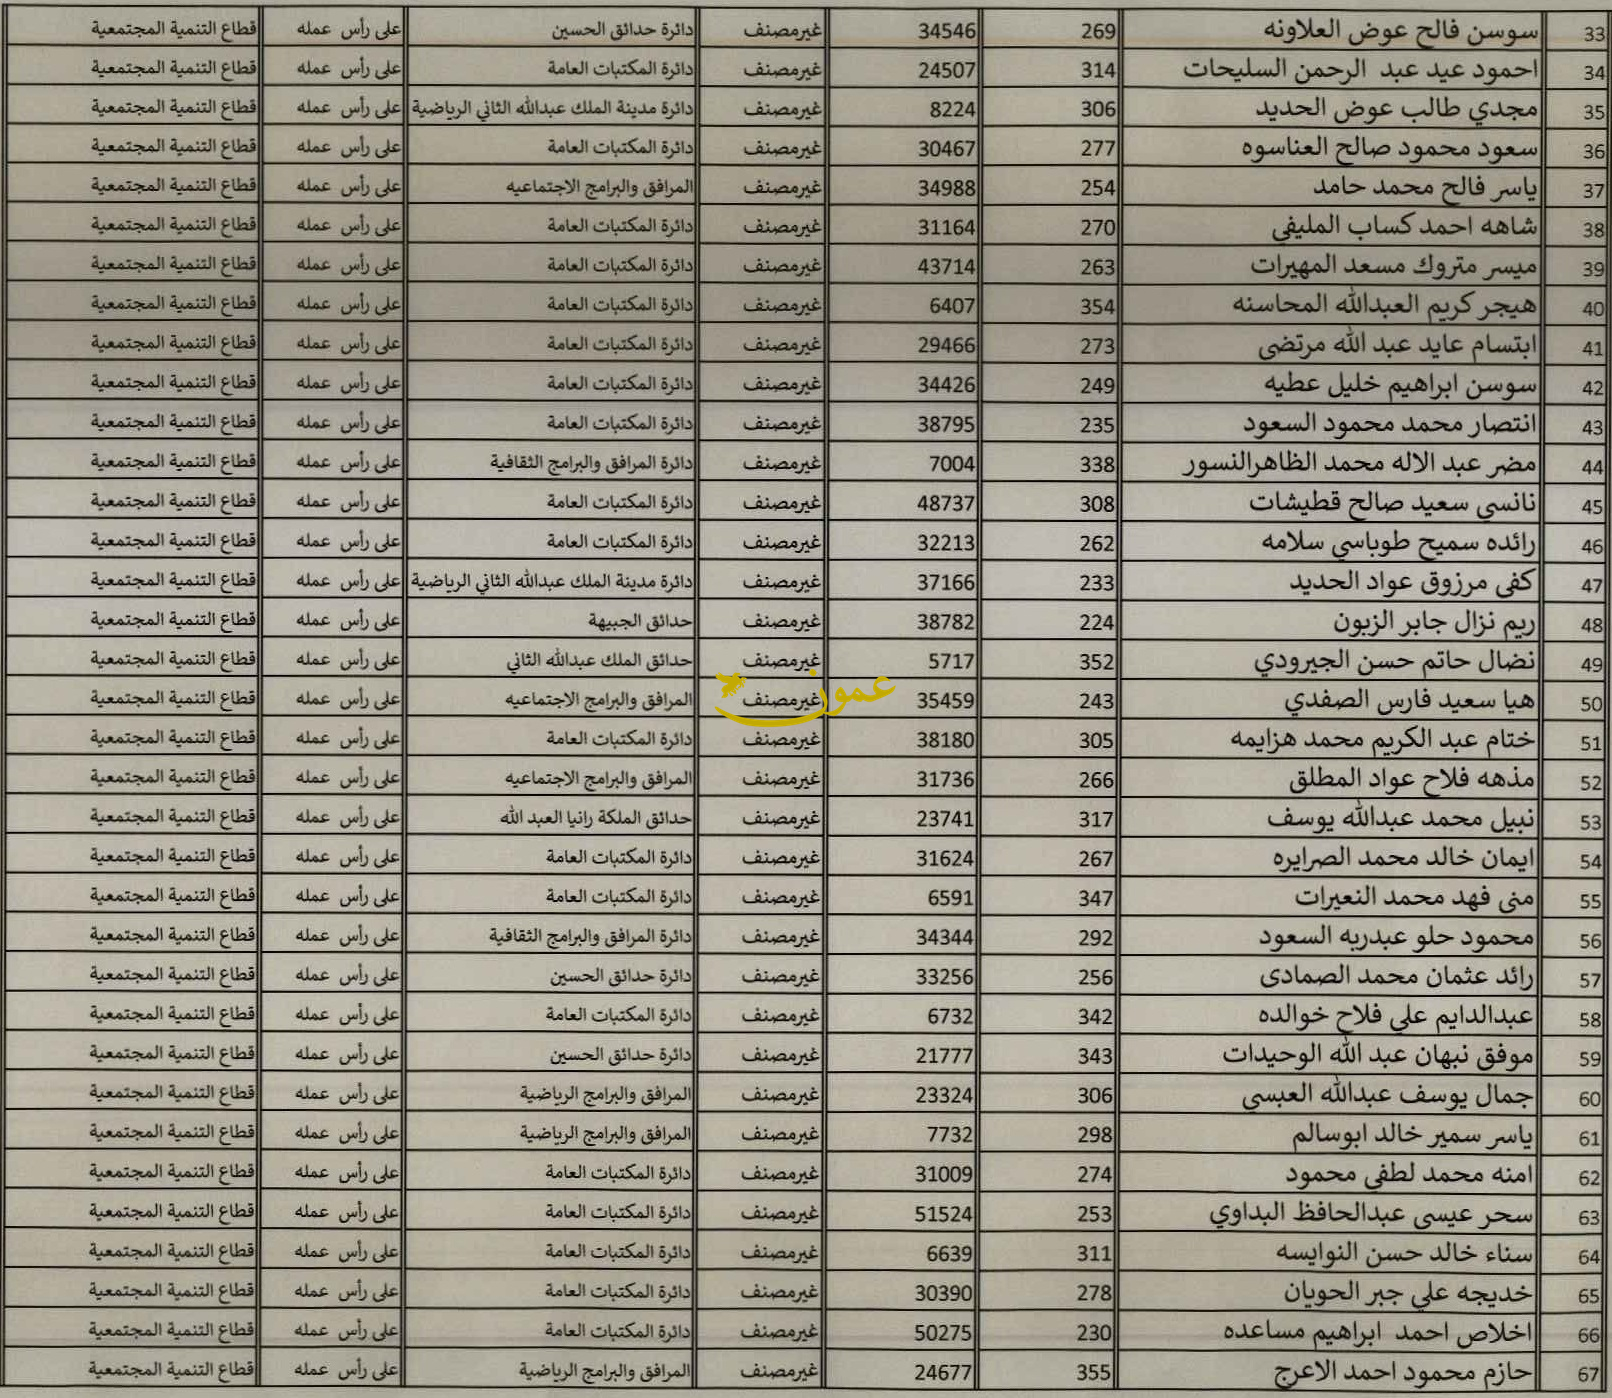 33 سوسن فالح عوض العلاونه 269 34546 غيرمصنف دائرة حدائق الحسين على رأس عمله قطاع التنمية المجتمعية
34 احمود عيد عبد الرحمن السليحات 314 24507 غيرمصنف دائرة المكتبات العامة على رأس عمله قطاع التنمية المجتمعية
35 مجدي طالب عوض الحديد 306 8224 غيرمصنف دائرة مدينة الملك عبدالله الثاني الرياضية على رأس عمله قطاع التنمية المجتمعية
36 سعود محمود صالح العناسوه 277 30467 غيرمصنف دائرة المكتبات العامة على رأس عمله قطاع التنمية المجتمعية
37 ياسر فالح محمد حامد 254 34988 غيرمصنف المرافق والبرامج الاجتماعيه على رأس عمله قطاع التنمية المجتمعية
38 شاهه احمد كساب المليفي 270 31164 غيرمصنف دائرة المكتبات العامة على رأس عمله قطاع التنمية المجتمعية
39 ميسر متروك مسعد المهيرات 263 43714 غيرمصنف دائرة المكتبات العامة على رأس عمله قطاع التنمية المجتمعية
40 هيجر كريم العبدالله المحاسنه 354 6407 غيرمصنف دائرة المكتبات العامة على رأس عمله قطاع التنمية المجتمعية
41 ابتسام عايد عبد الله مرتضى 273 29466 غيرمصنف دائرة المكتبات العامة على رأس عمله قطاع التنمية المجتمعية
42 سوسن ابراهيم خليل عطيه 249 34426 غيرمصنف دائرة المكتبات العامة على رأس عمله قطاع التنمية المجتمعية
43 انتصار محمد محمود السعود 235 38795 غيرمصنف دائرة المكتبات العامة على رأس عمله قطاع التنمية المجتمعية
44 مضر عبد الاله محمد الظاهرالنسور 338 7004 غيرمصنف دائرة المرافق والبرامج الثقافية على رأس عمله قطاع التنمية المجتمعية
45 نانسي سعيد صالح قطيشات 308 48737 غيرمصنف دائرة المكتبات العامة على رأس عمله قطاع التنمية المجتمعية
46 رائده سميح طوباسي سلامه 262 32213 غيرمصنف دائرة المكتبات العامة على رأس عمله قطاع التنمية المجتمعية
47 كفى مرزوق عواد الحديد 233 37166 غيرمصنف دائرة مدينة الملك عبدالله الثاني الرياضية على رأس عمله قطاع التنمية المجتمعية
48 ريم نزال جابر الزبون 224 38782 غيرمصنف حدائق الجبيهة على رأس عمله قطاع التنمية المجتمعية
49 نضال حاتم حسن الجيرودي 352 5717 غيرمصنف حدائق الملك عبدالله الثاني على رأس عمله قطاع التنمية المجتمعية
عمون
50 هيا سعيد فارس الصفدي 243 35459 غيرمصنف المرافق والبرامج الاجتماعيه على رأس عمله قطاع التنمية المجتمعية
51 ختام عبد الكريم محمد هزايمه 305 38180 غيرمصنف دائرة المكتبات العامة على رأس عمله قطاع التنمية المجتمعية
52 مذهه فلاح عواد المطلق 266 31736 غيرمصنف المرافق والبرامج الاجتماعيه على رأس عمله قطاع التنمية المجتمعية
53 نبيل محمد عبدالله يوسف 317 23741 غيرمصنف حدائق الملكة رانيا العبد الله على رأس عمله قطاع التنمية المجتمعية
54 ايمان خالد محمد الصرايره 267 31624 غيرمصنف دائرة المكتبات العامة على رأس عمله قطاع التنمية المجتمعية
55 منى فهد محمد النعيرات 347 6591 غيرمصنف دائرة المكتبات العامة على رأس عمله قطاع التنمية المجتمعية
56 محمود حلو عبدربه السعود 292 34344 غيرمصنف دائرة المرافق والبرامج الثقافية على رأس عمله قطاع التنمية المجتمعية
57 رائد عثمان محمد الصمادى 256 33256 غيرمصنف دائرة حدائق الحسين على رأس عمله قطاع التنمية المجتمعية
58 عبدالدايم علي فلاح خوالده 342 6732 غيرمصنف دائرة المكتبات العامة على رأس عمله قطاع التنمية المجتمعية
59 موفق نبهان عبد الله الوحيدات 343 21777 غيرمصنف دائرة حدائق الحسين على رأس عمله قطاع التنمية المجتمعية
60 جمال يوسف عبدالله العبسي 306 23324 غيرمصنف المرافق والبرامج الرياضية على رأس عمله قطاع التنمية المجتمعية
61 ياسر سمير خالد ابوسالم 298 7732 غيرمصنف المرافق والبرامج الرياضية على رأس عمله قطاع التنمية المجتمعية
62 امنه محمد لطفي محمود 274 31009 غيرمصنف دائرة المكتبات العامة على رأس عمله قطاع التنمية المجتمعية
63 سحر عيسى عبدالحافظ البداوي 253 51524 غيرمصنف دائرة المكتبات العامة على رأس عمله قطاع التنمية المجتمعية
64 سناء خالد حسن النوايسه 311 6639 غيرمصنف دائرة المكتبات العامة على رأس عمله قطاع التنمية المجتمعية
65 خديجه علي جبر الحويان 278 30390 غيرمصنف دائرة المكتبات العامة على رأس عمله قطاع التنمية المجتمعية
66 اخلاص احمد ابراهيم مساعده 230 50275 غيرمصنف دائرة المكتبات العامة على رأس عمله قطاع التنمية المجتمعية
67 حازم محمود احمد الاعرج 355 24677 غيرمصنف المرافق والبرامج الرياضية على رأس عمله قطاع التنمية المجتمعية